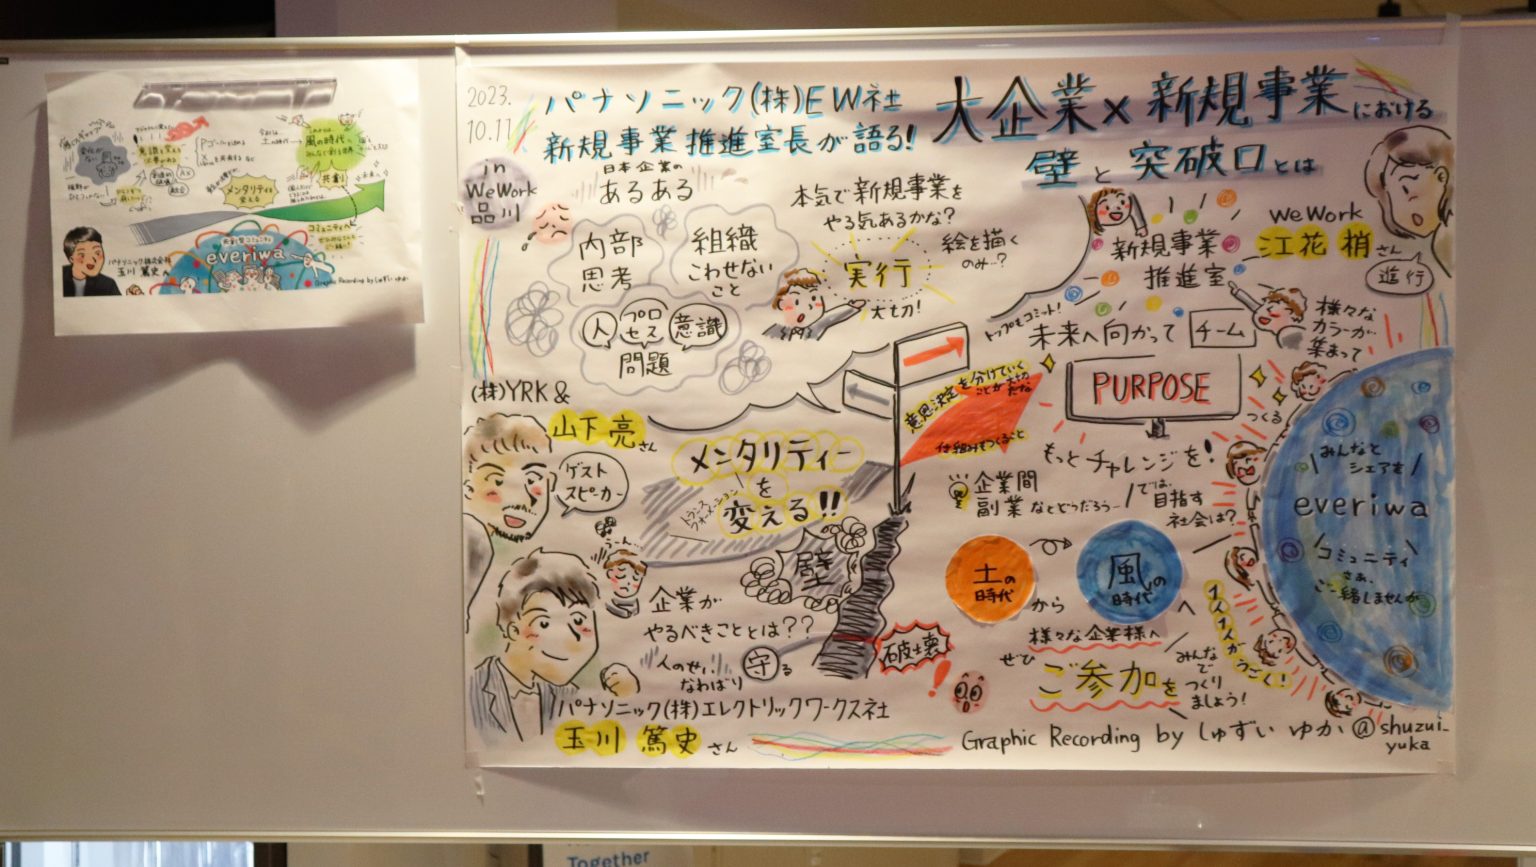 2023.
10.17
パナソニック(株)EW社
新規事業推進室長が語る!
大企業×新規事業における
壁と突破口とは
in
WeWork
品川
日本企業の
あるある
内部
思考
組織
こわせない
こと
人
プロ
セス
意識
問題
本気で新規事業を
やる気あるかな?
絵を描く
のみ…?
実行
大切!
新規事業
推進室
WeWork
江花 梢さん
進行
トップもコミット!
未来へ向かって
チーム
様々な
カラーが
集まって
PURPOSE
つくる
意思決定を分けていく
ことが大切
だな
仕組みをつくること
もっとチャレンジを!
企業間
副業などどうだろう…
では、
目指す
社会は?
(株)YRK&
山下 亮さん
ゲスト
スピーカー
メンタリティー
を
トランス
フォーメーション
変える!!
うーん…
壁
企業が
やるべきこととは??
人のせい、
なわばり
守る
破壊
!
土の
時代
から
風の
時代
へ
様々な企業様へ
ぜひ
ご参加を
みんな
で
つくり
ましょう!
1人1人がうごく!
みんなと
シェアを
everiwa
コミュニティ
さぁ、
ご一緒しませんか
パナソニック(株)エレクトリックワークス社
玉川 篤史さん
Graphic Recording by しゅずい ゆか @shuzui_
yuka
変化が
ない
風の時代へ
共創!
メンタリティを
変える
コミュニティへ
everiwa
パナソニック株式会社
玉川 篤史
Graphic Recording by しゅずい ゆか
Together